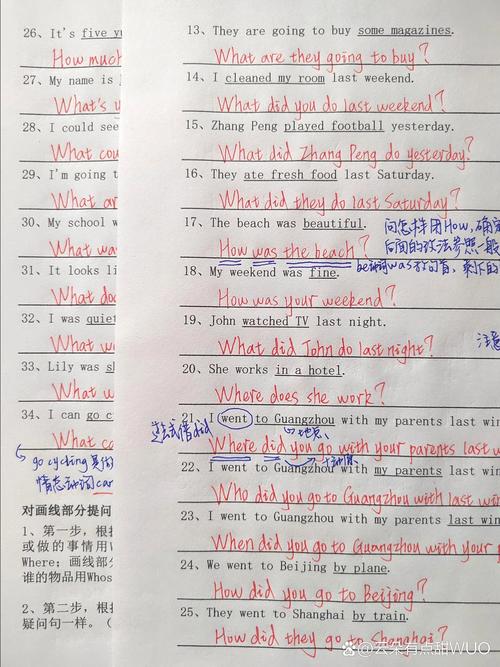 26、It's five
How much
27、My name is
What's
28、I could see
What
29、I'm going t
What
30、My school w
What
31、It looks li
What
32、I was quiet
What
33、Lily was
What
34、I can go c
What
go cycling
情态动词can
对画线部分提问
1、第一步，根据
或做的事情用W
Where; 画线部分
谁的物品用Whos
2、第二步，根据
疑问句一样。（
13、They are going to buy some magazines.
What are they going to buy?
14、I cleaned my room last weekend.
What did you do last weekend?
15、Zhang Peng played football yesterday.
What did Zhang Peng do yesterday?
16、They ate fresh food last Saturday.
What did they do last Saturday?
17、The beach was beautiful. 问怎样用How,确定
How was the beach? 后面的 参照一般
be动词was放句首，剩下的
18、My weekend was fine.
How was your weekend?
19、John watched TV last night.
What did John do last night? 注意
20、She works in a hotel.
Where does she work?
21、I went to Guangzhou with my parents last win
过去式借did 地点
Where did you go with your parents last w
22、I went to Guangzhou with my parents last win
Who did you go to Guangzhou with last win
23、I went to Guangzhou with my parents last win
When did you go to Guangzhou with your p
24、We went to Beijing by plane.
How did you go to Beijing?
25、They went to Shanghai by train.
How did they go to Shanghai?
有点甜WUO